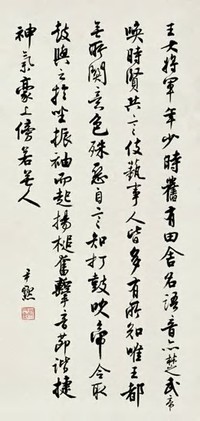 王大將軍年少時舊有田舍名語音亦楚武帝
喚時賢共言伎藝事人皆多有所知唯王都
無所關意色殊惡自言知打鼓吹帝令取
鼓與之於坐振袖而起揚槌奮擊音節諧捷
神氣豪上傍若無人
尹默